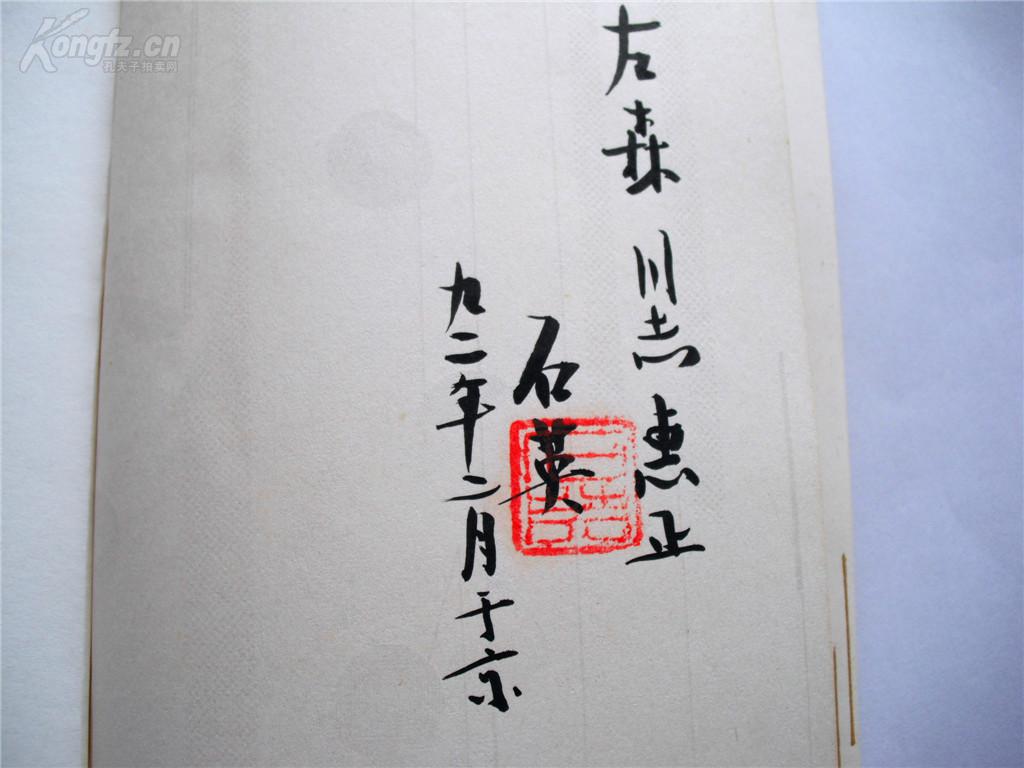 左森同志惠正
石英
九二年二月于京
Kongfz.cn
孔夫子拍卖网